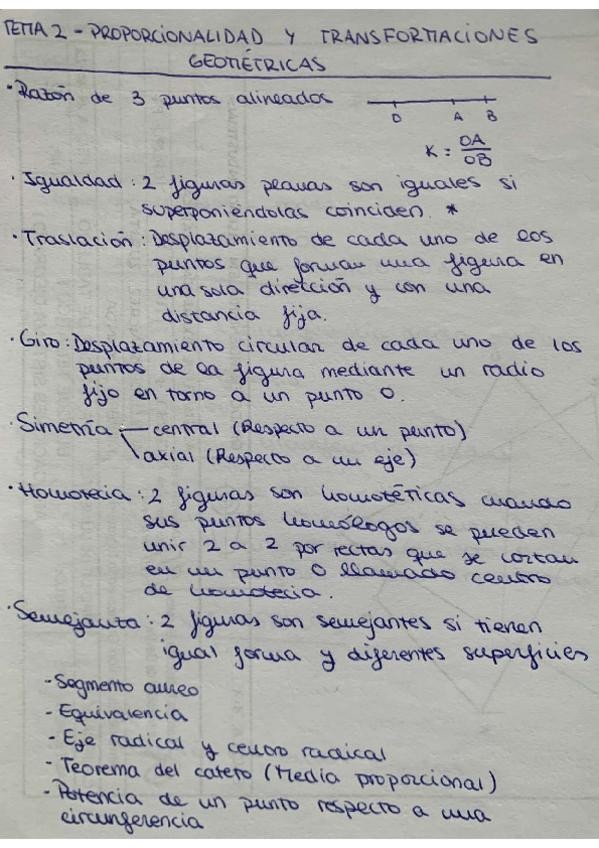 TEMA 2 - PROPORCIONALIDAD Y TRANSFORMACIONES
GEOMÉTRICAS
· Razón de 3 puntos alineados
O A B
K = OA
OB
· Igualdad: 2 figuras planas son iguales si
superponiéndolas coinciden. *
· Traslación: Desplazamiento de cada uno de los
puntos que forman una figura en
una sola dirección y con una
distancia fija.
· Giro: Desplazamiento circular de cada uno de los
puntos de la figura mediante un radio
fijo en torno a un punto O.
· Simetría central (Respecto a un punto)
axial (Respecto a un eje)
· Homotecia: 2 figuras son homotéticas cuando
sus puntos homólogos se pueden
unir 2 a 2 por rectas que se cortan
en un punto O llamado centro
de homotecia.
· Semejanza: 2 figuras son semejantes si tienen
igual forma y diferentes superficies
- Segmento aureo
- Equivalencia
- Eje radical y centro radical
- Teorema del cateto (Media proporcional)
- Potencia de un punto respecto a una
circunferencia